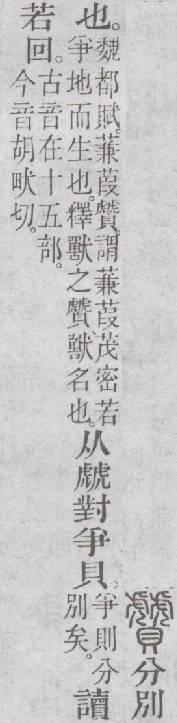 贙分別
也。魏都賦。蒹葭贙。謂蒹葭茂密若爭地而生也。釋獸之贙獸名也。从虤對爭貝。爭則分別矣。讀
若回。古音在十五部。今音胡畎切。